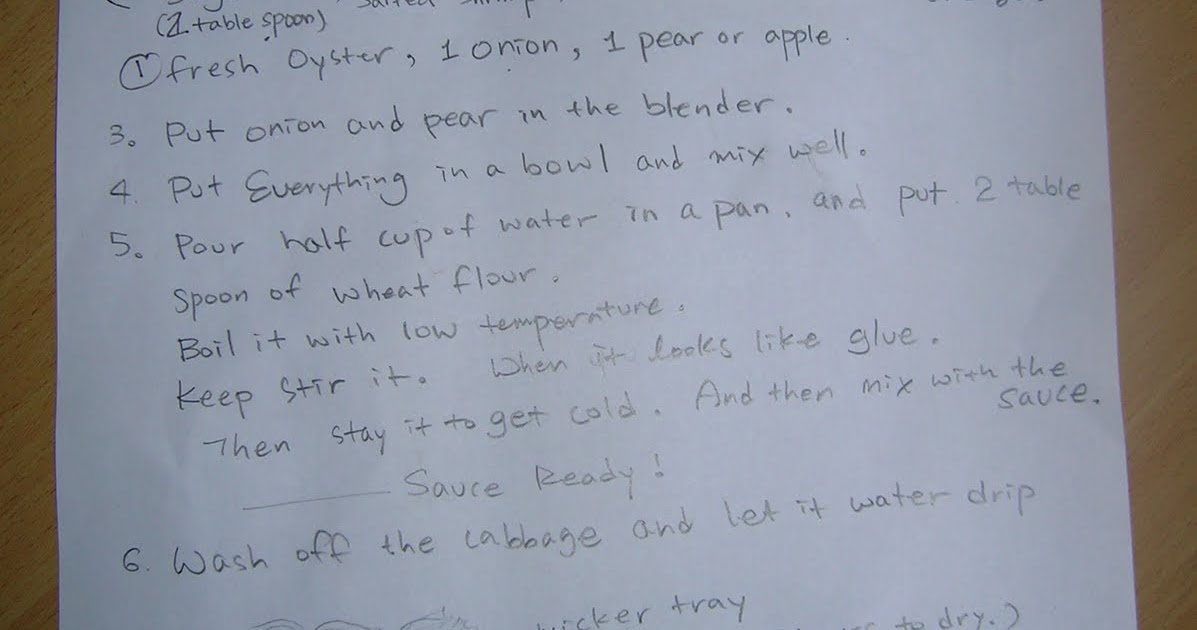 salted
(2 table spoon)
① fresh Oyster, 1 onion, 1 pear or apple.
3. Put onion and pear in the blender.
4. Put Everything in a bowl and mix well.
5. Pour half cup of water in a pan, and put 2 table
Spoon of wheat flour.
Boil it with low temperature.
Keep stir it. When it looks like glue.
Then stay it to get cold. And then mix with the
sauce.
Sauce Ready!
6. Wash off the cabbage and let it water drip
tray
to dry.)